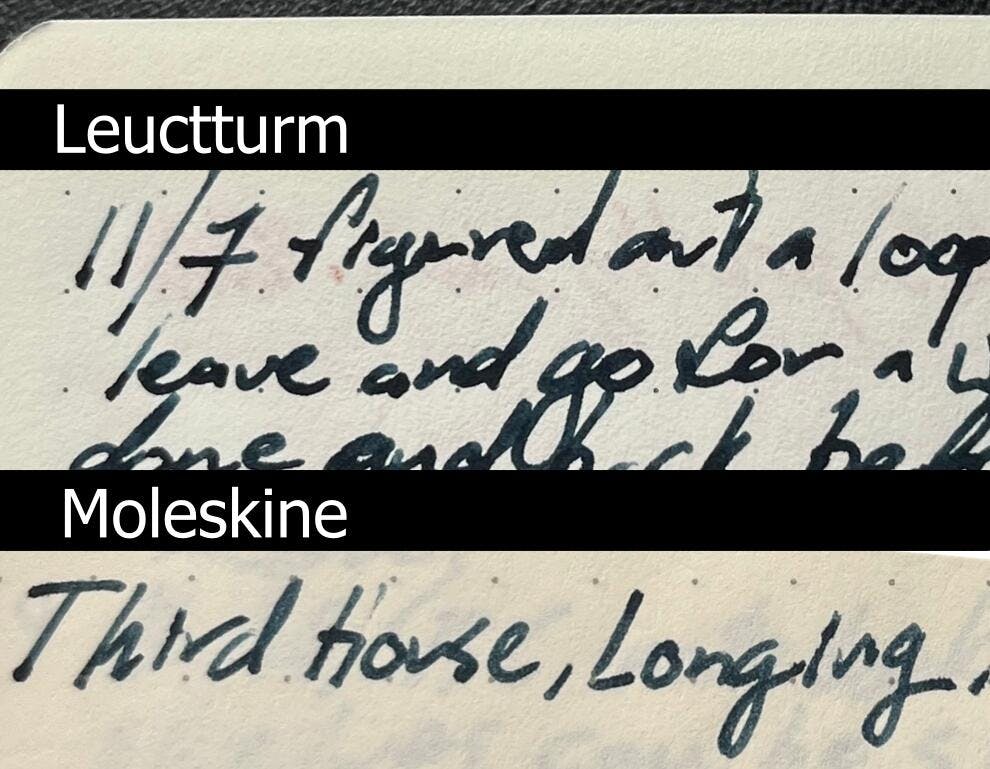 Leuctturm
11/7 figured out a loop
leave and go for a
done and back
Moleskine
Third House, Longing